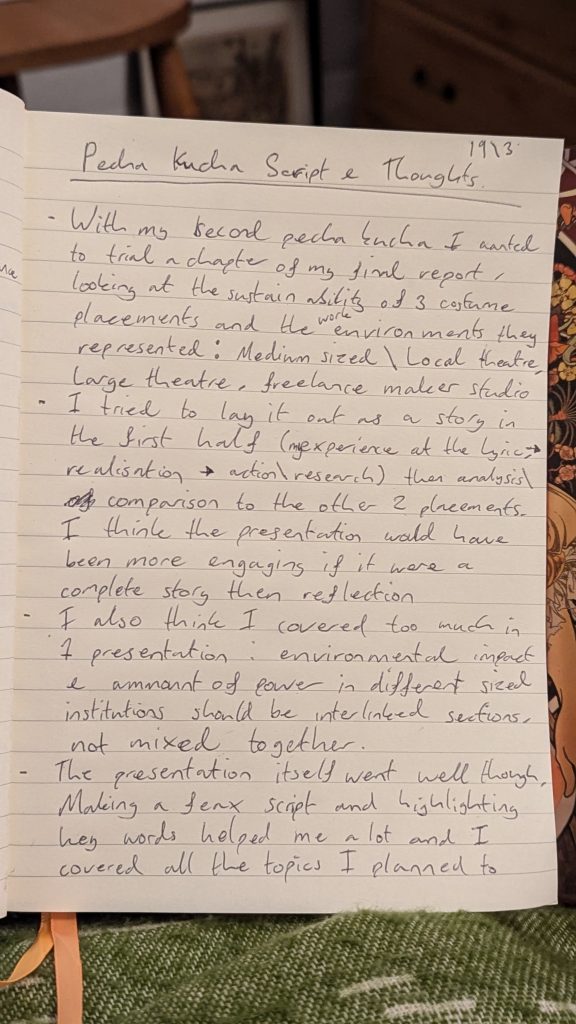 19\3
Pecha Kucha Script & Thoughts.
- With my second pecha kucha I wanted
to trial a chapter of my final report,
looking at the sustainability of 3 costume
placements and the work environments they
represented: Medium sized \ Local theatre,
Large theatre, freelance maker studio
- I tried to lay it out as a story in
the first half (my experience at the Lyric, →
realisation → action\research) then analysis\
comparison to the other 2 placements.
I think the presentation would have
been more engaging if it were a
complete story then reflection
- I also think I covered too much in
1 presentation : environmental impact
& ammount of power in different sized
institutions should be interlinked sections,
not mixed together.
- The presentation itself went well though,
Making a script and highlighting
key words helped me a lot and I
covered all the topics I planned to